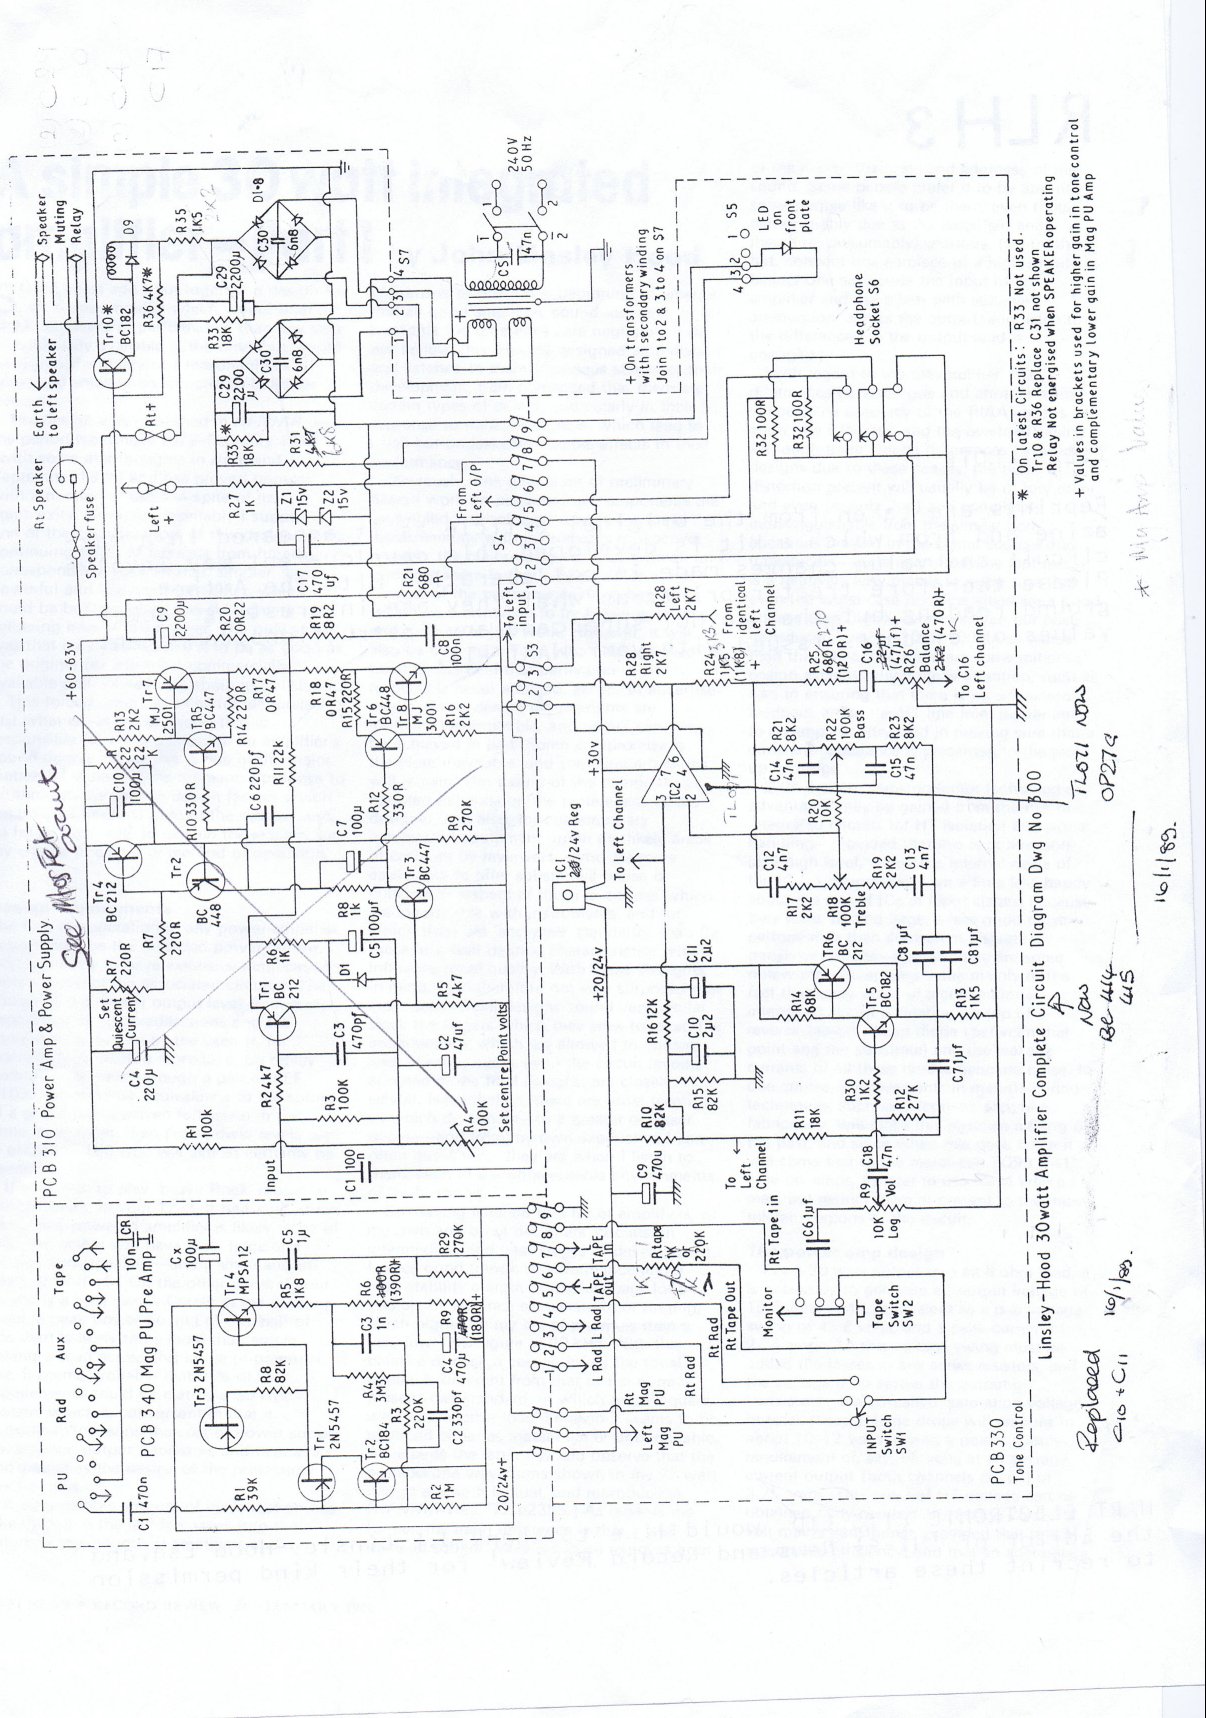 PCB 310 Power Amp & Power Supply
See Mosfet
+60-63v
Speaker fuse
Rt Speaker
Earth
to left speaker
Speaker
Muting
Relay
Left
+
Rt+
Set
Quiescent
Current
C4
220µ
R7
220R
R7
220R
Tr4
BC212
C10
100µ
R13
2K2
Tr7
MJ
2501
C9
2200µ
R27
1K
R33
18K
*
C29
2200
µ
R33
18K
Tr10*
BC182
D9
R36 4K7*
R35
1K5
C29
2200µ
D1-8
C30
6n8
C30
6n8
R1
100k
Tr2
BC
448
R10 330R
TR5
BC447
R14 220R
R17
0R47
R20
0R22
R19
8R2
C17
470
uf
Z1
15v
Z2
15v
R31
4K7
Input
R2 4k7
Tr1
BC
212
R6
1K
C6 220pf
R11 22k
R18
0R47
R15 220R
Tr6
BC448
Tr8
MJ
3001
R16
2K2
C8
100n
R21
680
R
R3
100K
C3
470pf
D1
C5 100µf
R8
1k
C7
100µ
R12
330R
R9
270K
Tr3
BC447
R5
4k7
C2
47uf
C1 100n
R4
100K
Set centre (Point volts)
To Left
Input
From
Left O/P
S4
1 2 3 4 5 6 7 8 9
S3
1 2 3
1 2 3 4 S7
+
C5
47n
1
2
1
2
240V
50Hz
+ On transformers
with 1 secondary winding
Join 1 to 2 & 3 to 4 on S7
PU
Rad
Aux
Tape
PCB 340 Mag PU Pre Amp
CR
10n
C1
470n
Cx
100µ
Tr3 2N5457
Tr4
MPSA12
C5
1µ
R5
1K8
R8
82K
R1
39K
Tr1
2N5457
Tr2
BC184
C3
1n
R4
3M3
R6
(390R)+
R29
270K
R9
470R
(180R)+
C4
470µ
R3
220K
C2 330pf
R2
1M
20/24v+
1 2 3 4 5 6 7 8 9
L Rad
L Rad
TAPE
out
TAPE
in
L
L
Left
Mag
PU
Rt
Mag
PU
Rt Rad
Rt Rad
Rt Tape Out
Rtape
1K
or
220K
1K
Rt Tape 1 in
Monitor
Tape
Switch
SW2
INPUT
Switch
SW1
PCB330
Tone Control
C9
470u
R10
82K
R15
82K
R16 12K
C10
2µ2
C11
2µ2
+20/24v
IC1
20/24v Reg
To Left Channel
+30v
IC2
3
7
6
4
2
R28
Right
2K7
R28
Left
2K7
R24
1K5
(1K8)
+
From
identical
Left
Channel
R25
680R
270
(120R)+
C16
22µf
(47µf)+
R26
Balance
2K2 (470R)+
1K
To C16
Left channel
R21
8K2
R22
100K
Bass
R23
8K2
C14
47n
C15
47n
R20
10K
C12
4n7
R17
2K2
R18
100K
Treble
R19
2K2
C13
4n7
C8 1µf
C8 1µf
TR6
BC
212
R14
68K
Tr5
BC182
R13
1K5
R11
18K
To
Left
Channel
R30
1K2
R12
27K
C7 1µf
C18
47n
R9
Vol
10K
Log
C6 1µf
4 3 2 1
S5
LED
on
front
plate
Headphone
Socket S6
R32 100R
R32 100R
Linsley-Hood 30watt Amplifier Complete Circuit Diagram Dwg No 300
* On latest Circuits: R33 Not used.
Tr10 & R36 Replace C31 not shown
Relay Not energised when SPEAKER operating
+ Values in brackets used for higher gain in tone control
and complementary lower gain in Mag PU Amp
TL071 NOW
OP27G
NOW
BC414
415
16/1/89.
Replaced
C10 + C11
16/1/89.
* My Amp Value